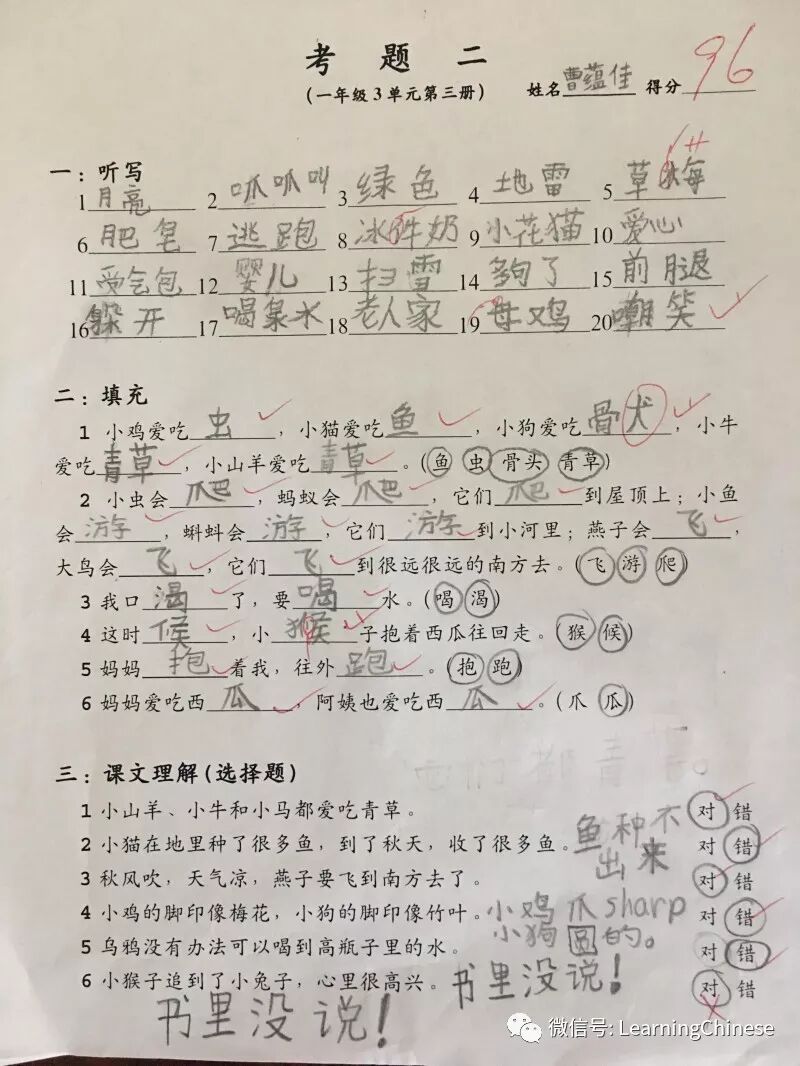 考 题 二 96
(一年级3单元第三册) 姓名 曹蕴佳 得分
一：听写
1 月亮 2 呱呱叫 3 绿色 4 地雷 5 草莓
6 肥皂 7 逃跑 8 冰牛奶 9 小花猫 10 爱心
11 受气包 12 婴儿 13 扫雪 14 多狗了 15 前腿
16 躲开 17 喝泉水 18 老人家 19 母鸡 20 嘲笑
二：填充
1 小鸡爱吃 虫 ，小猫爱吃 鱼 ，小狗爱吃 骨犬 ，小牛
爱吃 青草 ，小山羊爱吃 青草 。(鱼 虫 骨头 青草)
2 小虫会 爬 ，蚂蚁会 爬 ，它们 爬 到屋顶上；小鱼
会 游 ，蝌蚪会 游 ，它们 游 到小河里；燕子会 飞 ，
大鸟会 飞 ，它们 飞 到很远很远的南方去。(飞 游 爬)
3 我口 渴 了，要 喝 水。(喝 渴)
4 这时 候 ，小 猴 子抱着西瓜往回走。(猴 候)
5 妈妈 抱 着我，往外 跑 。(抱 跑)
6 妈妈爱吃西 瓜 ，阿姨也爱吃西 瓜 。(爪 瓜)
三：课文理解(选择题)
1 小山羊、小牛和小马都爱吃青草。 对 错
2 小猫在地里种了很多鱼，到了秋天，收了很多鱼。 鱼种不出来 对 错
3 秋风吹，天气凉，燕子要飞到南方去了。 对 错
4 小鸡的脚印像梅花，小狗的脚印像竹叶。 小鸡爪sharp 小狗圆的。 对 错
5 乌鸦没有办法可以喝到高瓶子里的水。 对 错
6 小猴子追到了小兔子，心里很高兴。 书里没说！ 对 错
书里没说！
微信号: LearningChinese